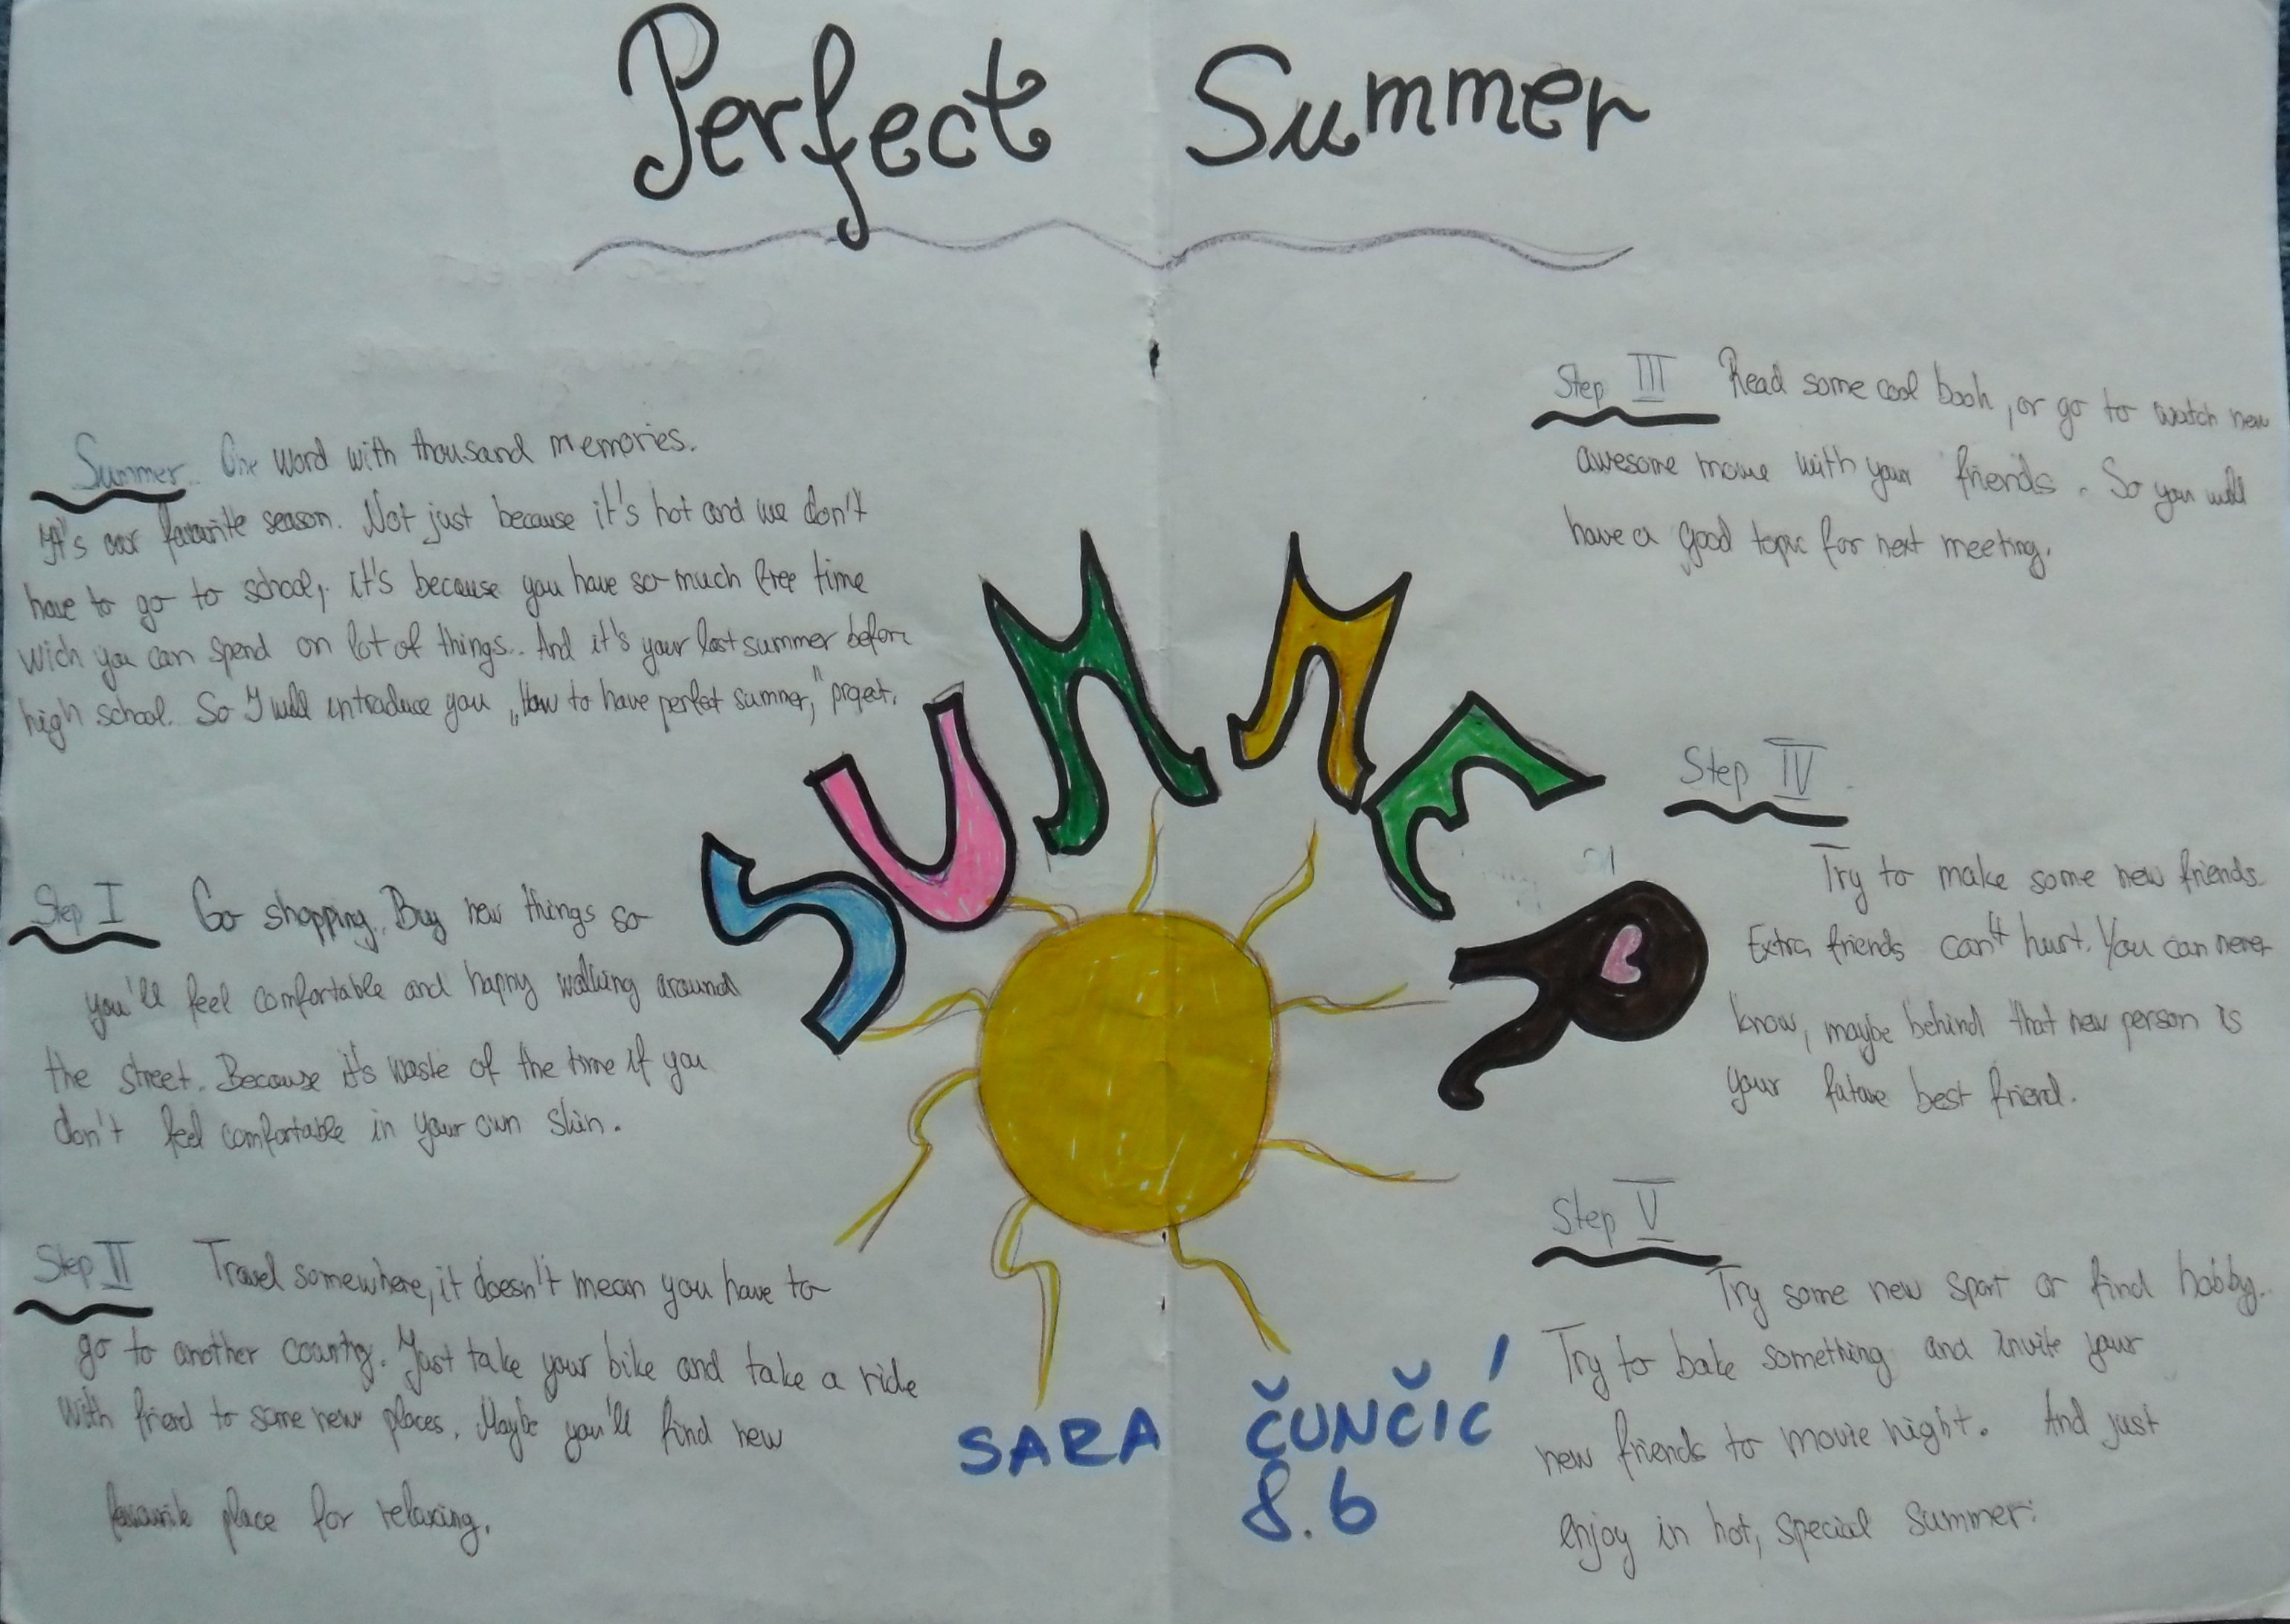 Perfect Summer
Summer. One word with thousand memories.
It's our favourite season. Not just because it's hot and we don't
have to go to school, it's because you have so much free time
wich you can spend on lot of things.. And it's your last summer before
high school. So I will introduce you „How to have perfect summer," project.
Step I Go shopping.. Buy new things so
you'll feel comfortable and happy walking around
the street. Because it's waste of the time if you
don't feel comfortable in your own skin.
Step II Travel somewhere, it doesn't mean you have to
go to another country. Just take your bike and take a ride
with friend to some new places. Maybe you'll find new
favourite place for relaxing.
SUMMER
Step III Read some cool book, or go to watch new
awesome movie with your friends. So you will
have a good topic for next meeting.
Step IV
Try to make some new friends.
Extra friends can't hurt. You can never
know, maybe behind that new person is
your future best friend.
Step V
Try some new sport or find hobby..
Try to bake something and invite your
new friends to movie night. And just
enjoy in hot, special summer.
SARA ČUNČIĆ
8.b